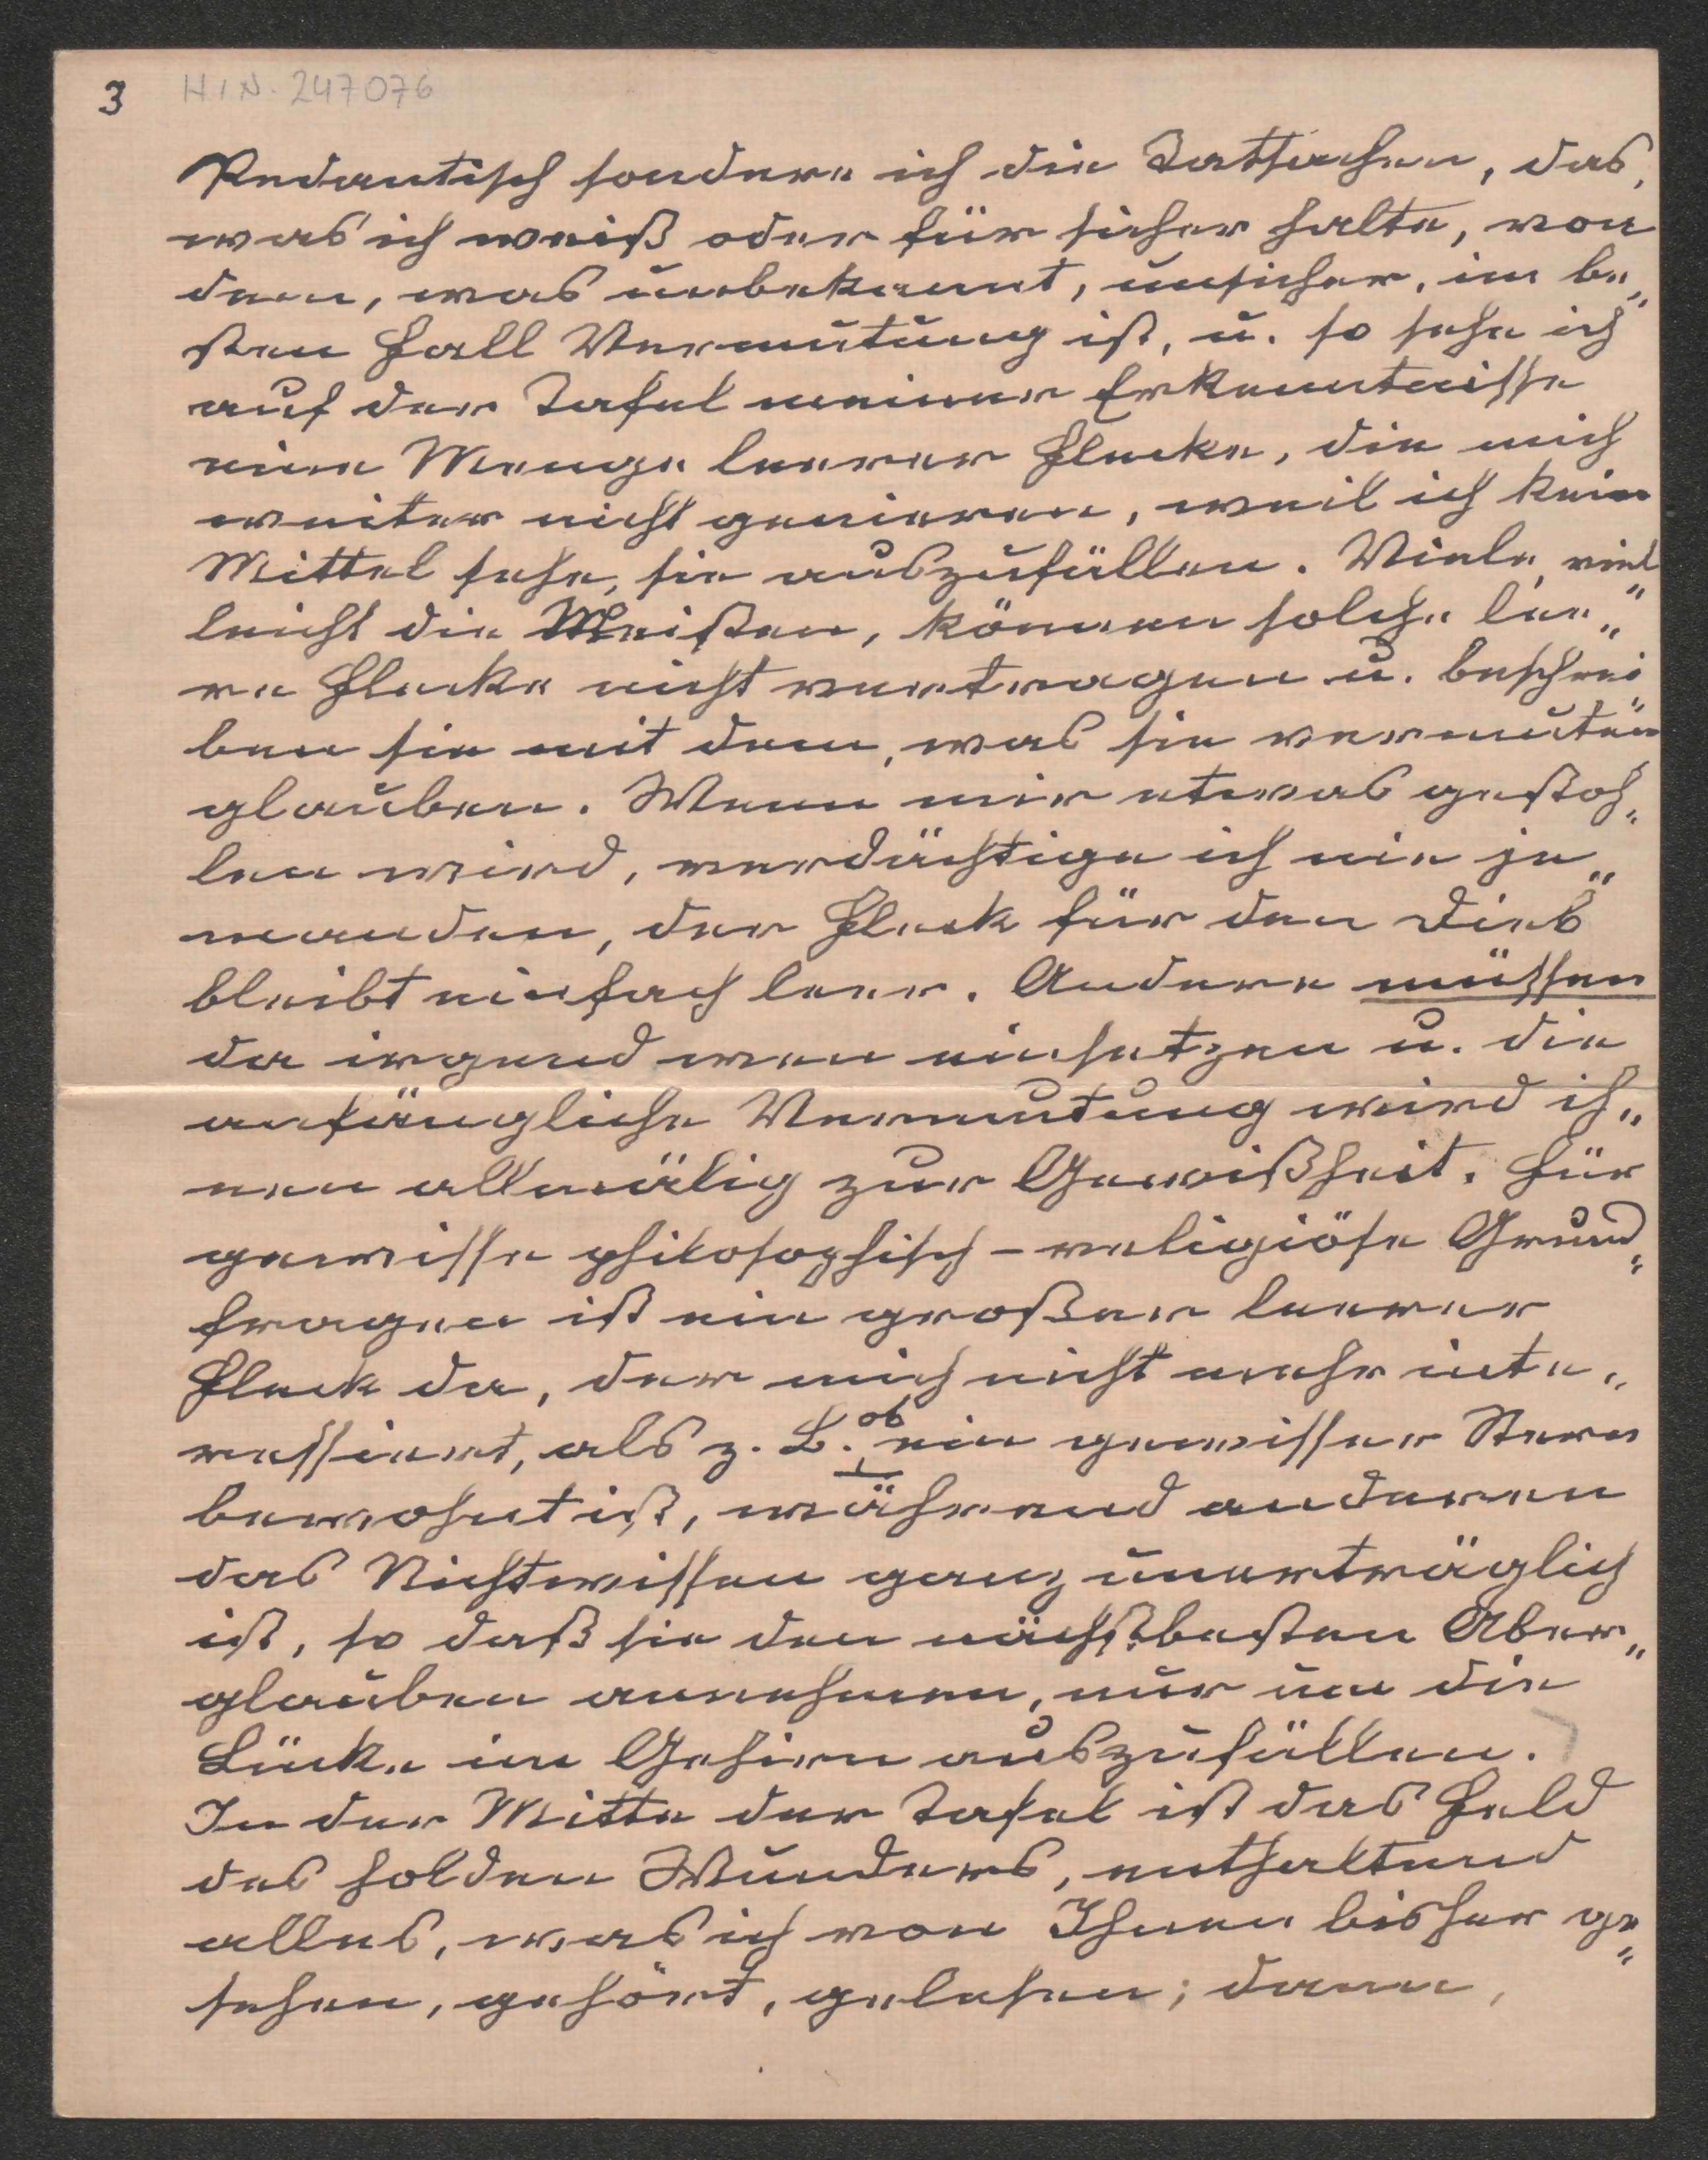 3 H.I.N. 247076
Pedantisch sondere ich die Tatsachen, das,
was ich weiß oder für sicher halte, von
dem, was unbekannt, unsicher, im be„
sten Fall Vermutung ist, u. so sehe ich
auf der Tafel meiner Erkenntnisse
eine Menge leerer Flecke, die mich
weiter nicht genieren, weil ich kein
Mittel sehe, sie auszufüllen. Viele, viel„
leicht die Meisten, können solche lee„
re Flecke nicht vertragen u. beschrei
ben sie mit dem, was sie vermuten
glauben. Wenn mir etwas gestoh„
len wird, verdächtige ich nie je„
manden, der Fleck für den Dieb
bleibt einfach leer. Andere müssen
da irgend wen einsetzen u. die
anfängliche Vermutung wird ih„
nen allmälig zur Gewißheit. Für
gewisse philosophisch-religiöse Grund„
fragen ist ein großer leerer
Fleck da, der mich nicht mehr inte„
ressiert, als z. B. ob ein gewisser Stern
bewohnt ist, während anderen
das Nichtwissen ganz unerträglich
ist, so daß sie den nächstbesten Aber„
glauben annehmen, nur um die
Lücke im Gehirn auszufüllen.
In der Mitte der Tafel ist das Feld
des holden Wunders, enthaltend
alles, was ich von Ihnen bisher ge„
sehen, gehört, gelesen; dann,